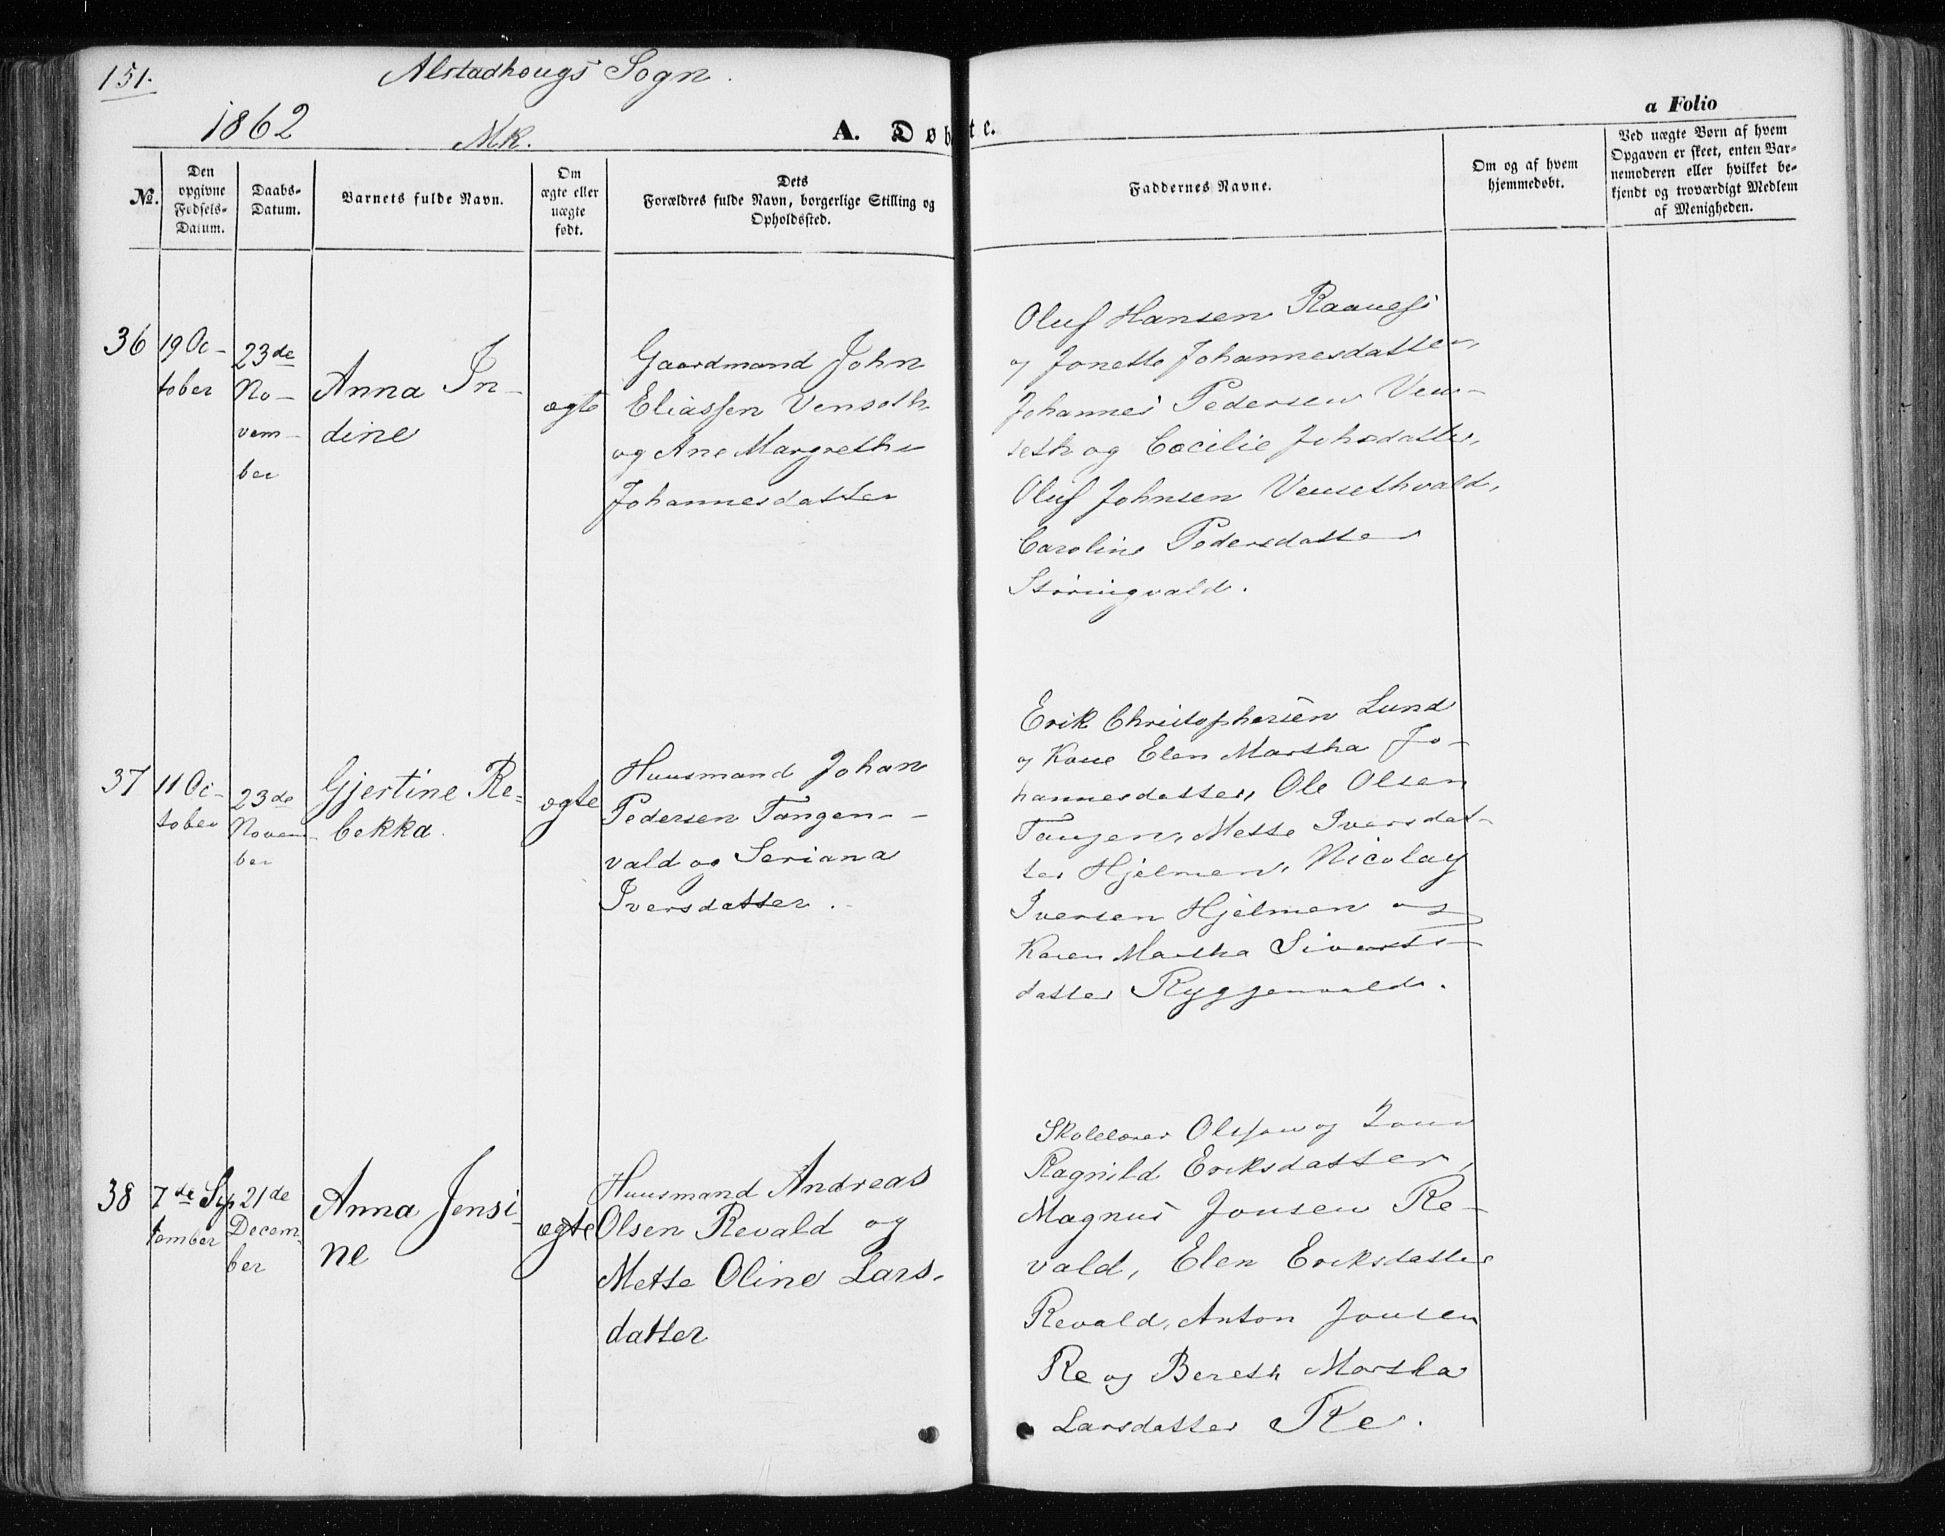 151.
Alstadhougs Sogn.
1862
Mk.
A. Døbte.
a Folio
No.
Den
opgivne
Fødsels-
Datum.
Daabs-
Datum.
Barnets fulde Navn.
Om
ægte eller
uægte
født.
Dets
Forældres fulde Navn, borgerlige Stilling og
Opholdssted.
Faddernes Navne.
Om og af hvem
hjemmedøbt.
Ved uægte Børn af hvem
Opgaven er skeet, enten Bar-
nemoderen eller hvilket be-
kjendt og troværdigt Medlem
af Menigheden.
36
19 Oc-
tober
23de
No-
vem-
ber
Anna In-
dine
ægte
Gaardmand John
Eliassen Venseth
og Ane Margrethe
Johannesdatter
Oluf Hansen
og Jonette Johannesdatter,
Johannes Pedersen Ven-
seth og Cecilie Johsdatter,
Oluf Johnsen Vensethvald,
Caroline Pedersdatter
Støringvald.
37
11 Oc-
tober
23de
Novem-
ber
Gjertine Re-
bekka.
ægte
Huusmand Johan
Pedersen Tangen-
vald og Seriana
Iversdatter.
Erik Christophersen Lund
og Kone Elen Martha Jo-
hannesdatter, Ole Olsen
Tangen, Mette Iversdat-
ter Hjelmen, Nicolay
Iversen Hjelmen og
Karen Martha Siverts-
datter Ryggenvald.
38
7de Sep
tember
21de
Decem-
ber
Anna Jensi-
ne
ægte
Huusmand Andreas
Olsen Revald og
Mette Oline Lars-
datter
Skolelærer og
Ragnild Eriksdatter,
Magnus Jonsen Re-
vald, Elen Eriksdatter
Revald, Anton Jonsen
Re og Bereth Martha
Larsdatter Re.